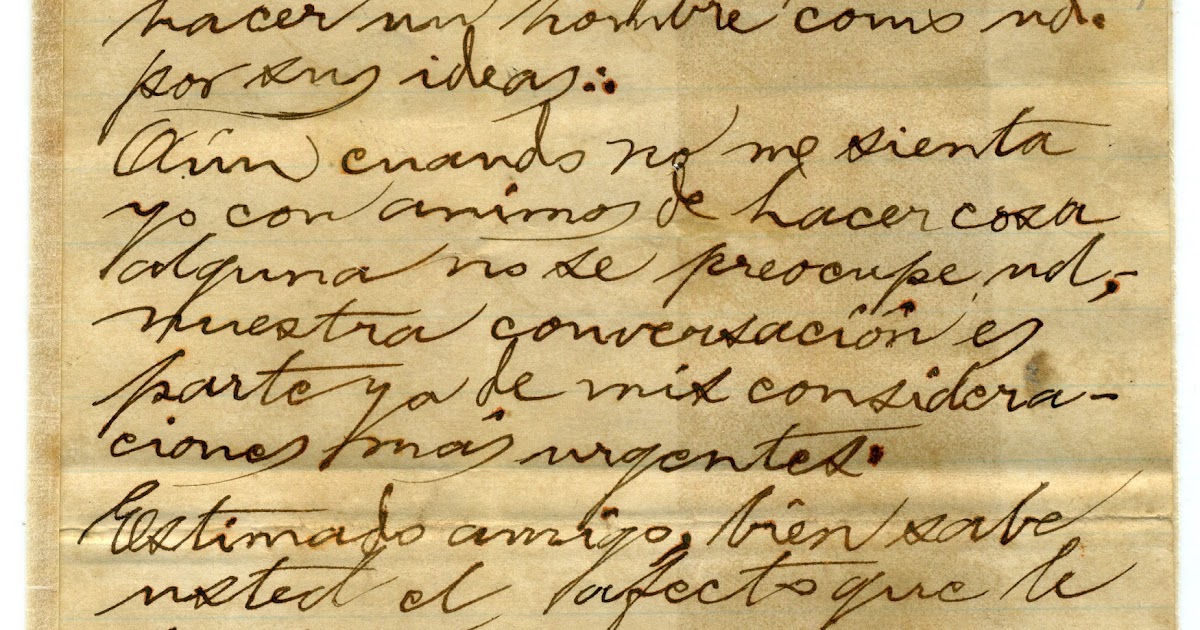 hacer un hombre como ud.
por sus ideas..:
Aún cuando no me sienta
yo con animos de hacer cosa
alguna no se preocupe ud,-
nuestra conversación es
parte ya de mis considera-
ciones más urgentes.
Estimado amigo, bien sabe
usted el afecto que le